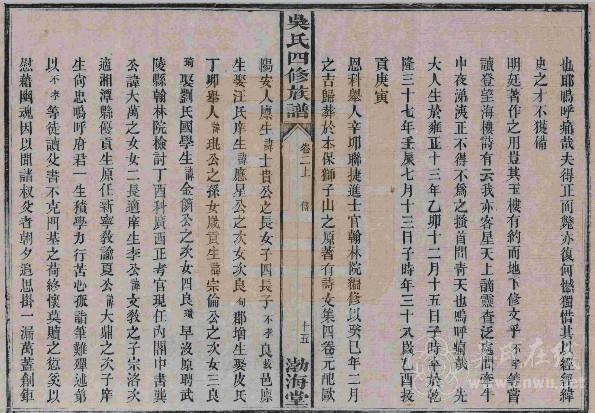 也耶嗚呼痛哉夫得正而斃亦復何憾獨惜其人經經緯
史之才不獲備
明廷著作之用豈其玉樓有約而地下修文乎不孝等嘗
讀登望海樓詩有云我亦客星天上謫靈查泛斗牛
中夜涕洟正不得不為之搔首問青天也嗚呼痛哉先
大人生於雍正十三年乙卯十二月十五日子時卒於乾
隆三十七年壬辰七月十三日子時年三十八歲乙酉拔
貢庚寅
恩科舉人辛卯聯捷進士官翰林院編修以癸巳年二月
之吉歸葬於本保獅子山之原著有詩文集四卷元配歐
吳氏四修族譜
卷二上 傳
十五
渤海堂
陽安人廩生諱士貴公之長女子四長子不孝良 邑廩
生娶汪氏庠生諱應星公之次女次良 郡增生娶皮氏
丁卯舉人諱琨公之孫女歲貢生諱宗倫公之次女三良
琦娶劉氏國學生諱金 公之次女四良 早沒原聘武
陵縣翰林院檢討丁酉科廣西正考官現任內閣中書龔
公諱大萬之女女二長適庠生李公諱文教之子宗洛次
適湘潭縣優貢生原任新寧教諭夏公諱大鼎之次子庠
生尚忠嗚呼府君一生積學力行苦心孤詣筆難殫述第
以不孝等徒讀父書不克開基之荷終懷莫贖之愆奚以
慰藉幽魂因以聞諸叔父者朝夕追思掛一漏萬蓋創鉅